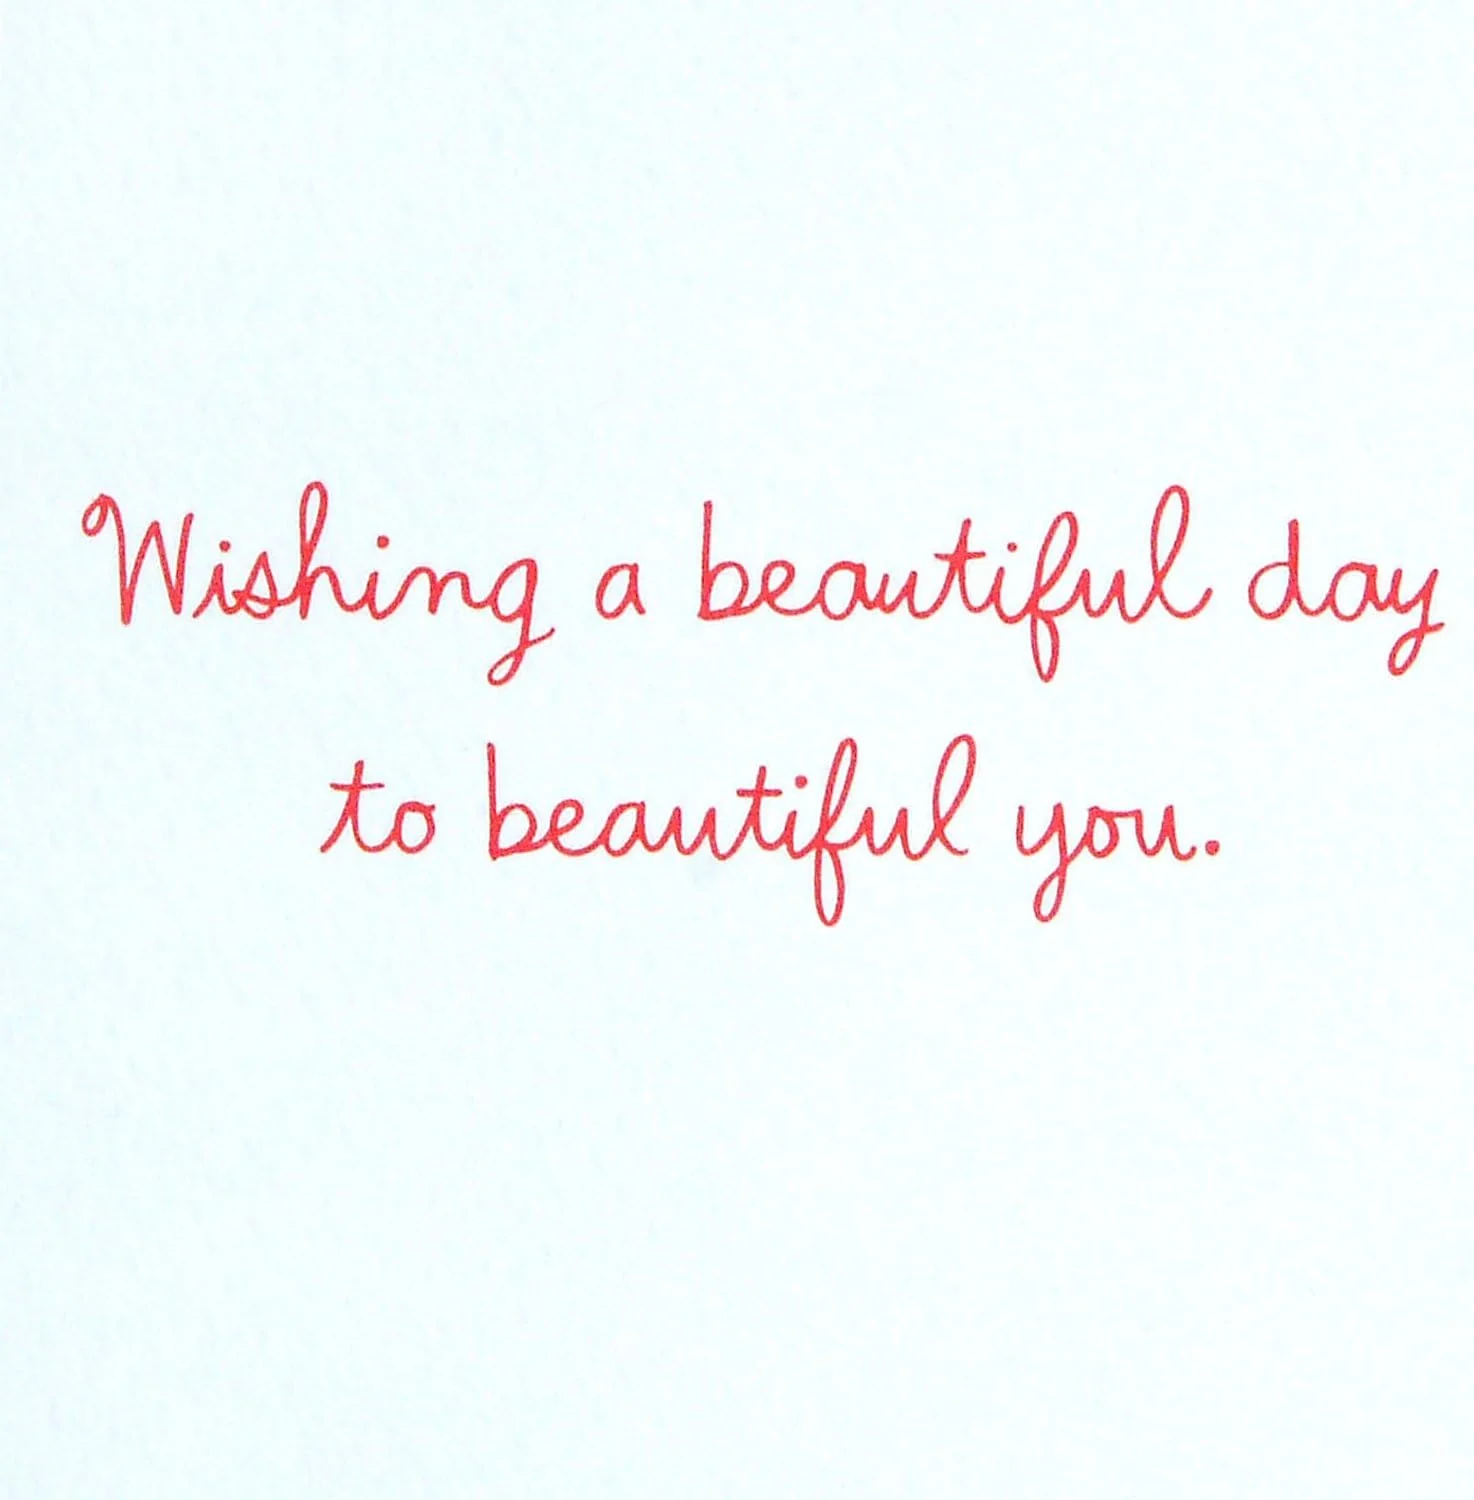 Wishing a beautiful day
to beautiful you.